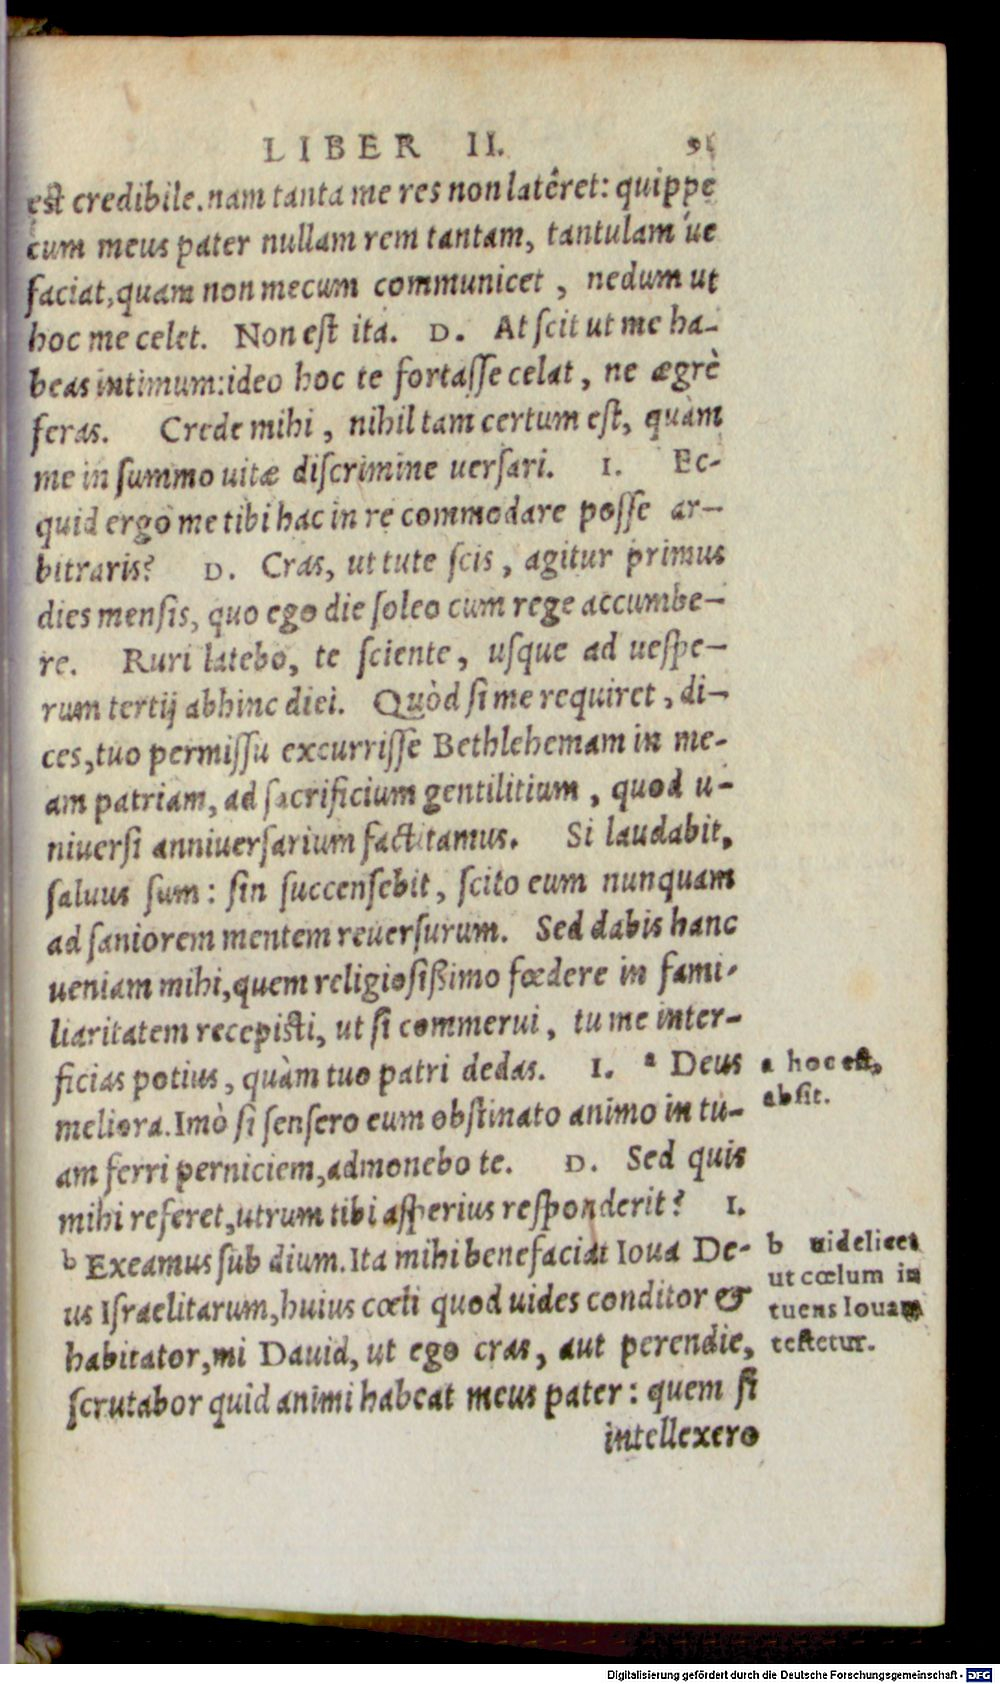 LIBER II.
est credibile. nam tanta me res non latêret: quippe
cum meus pater nullam rem tantam, tantulam úe
faciat, quam non mecum communicet, nedum ut
hoc me celet. Non est ita. D. At scit ut me ha-
beas intimum: ideo hoc te fortasse celat, ne ægrè
feras. Crede mihi, nihil tam certum est, quàm
me in summo uitæ discrimine uersari. I. Ec-
quid ergo me tibi hac in re commodare posse ar-
bitraris? D. Cras, ut tute scis, agitur primus
dies mensis, quo ego die soleo cum rege accumbe-
re. Ruri latebo, te sciente, usque ad uespe-
rum tertij abhinc diei. Quòd si me requiret, di-
ces, tuo permissu excurrisse Bethlehemam in me-
am patriam, ad sacrificium gentilitium, quod u-
niuersi anniuersarium factitamus. Si laudabit,
saluus sum: sin succensebit, scito eum nunquam
ad saniorem mentem reuersurum. Sed dabis hanc
ueniam mihi, quem religiosißimo fœdere in fami-
liaritatem recepisti, ut si commerui, tu me inter-
ficias potius, quàm tuo patri dedas. I. a Deus
meliora. Imò si sensero eum obstinato animo in tu-
am ferri perniciem, admonebo te. D. Sed quis
mihi referet, utrum tibi asperius responderit? I.
b Exeamus sub dium. Ita mihi benefaciat Ioua De-
us Israelitarum, huius cœli quod uides conditor &
habitator, mi Dauid, ut ego cras, aut perendie,
scrutabor quid animi habeat meus pater: quem si
intellexero
a hoc est,
absit.
b uidelicet
ut cœlum in
tuens Iouam
testetur.
Digitalisierung gefördert durch die Deutsche Forschungsgemeinschaft - DFG